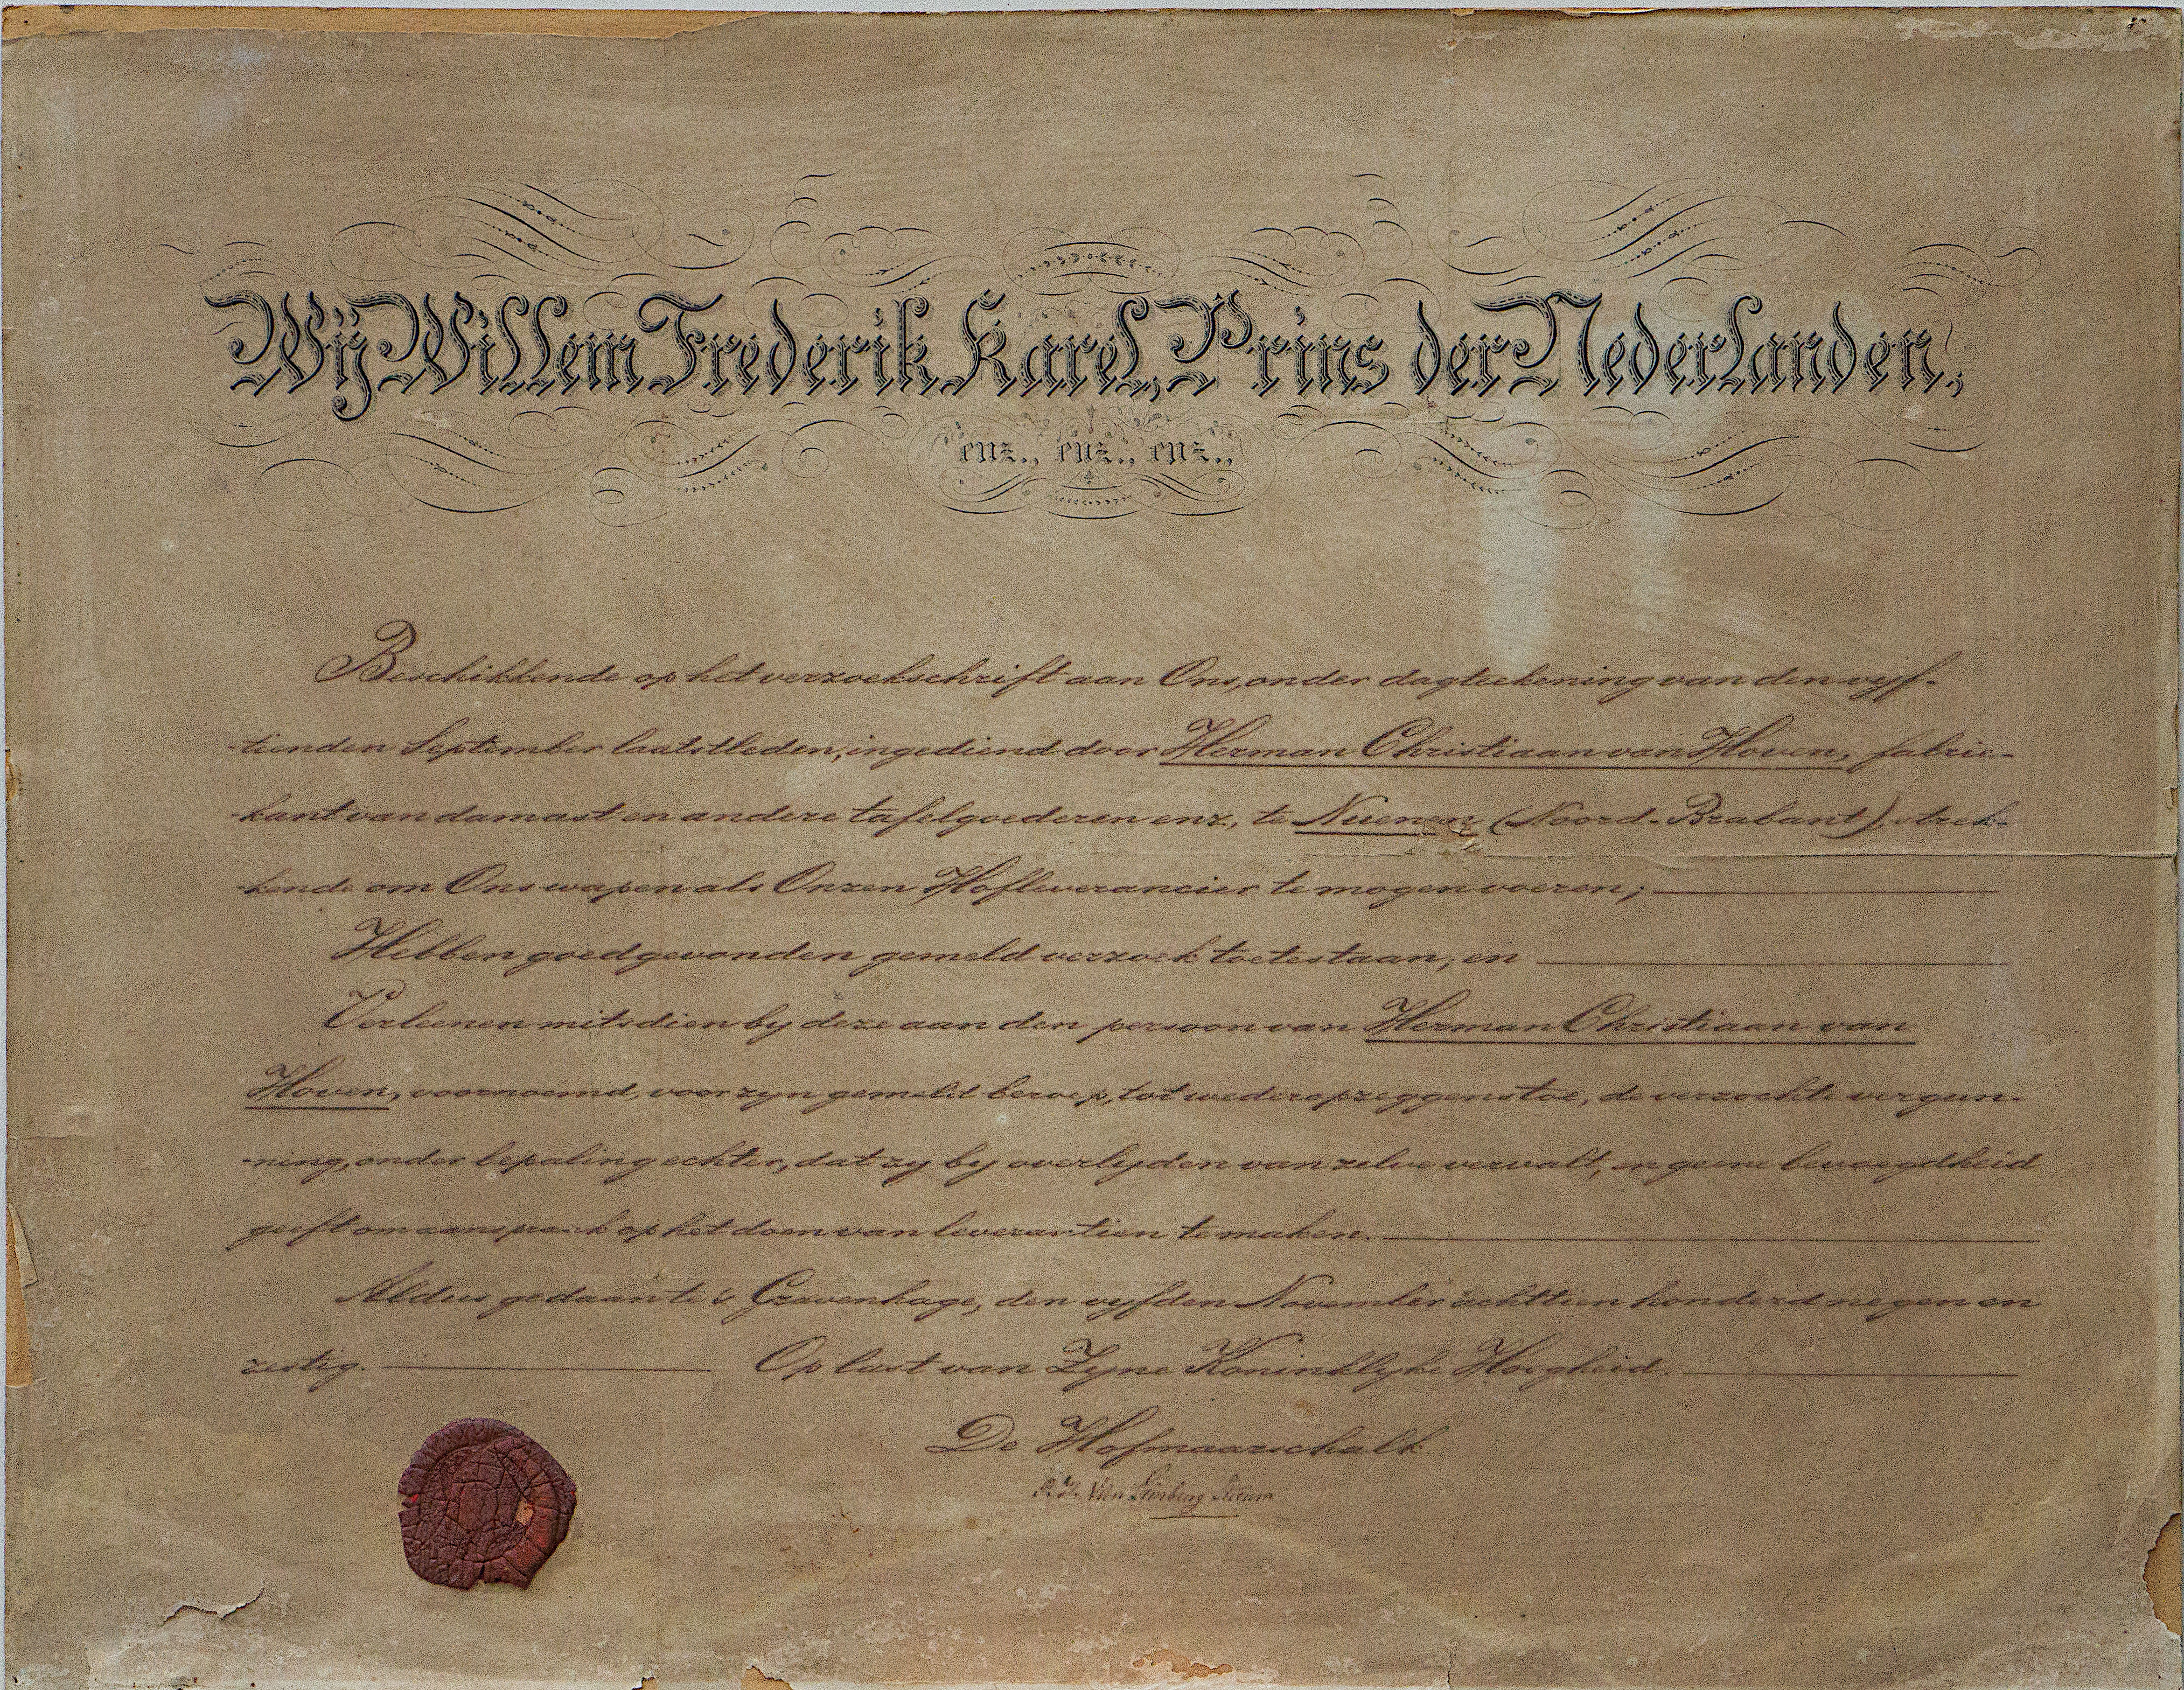 Wij Willem Frederik Karel, Prins der Nederlanden,
enz., enz., enz.,
Beschikkende op het verzoekschrift aan Ons, onder dagteekening van den vyf-
-tienden September laatstleden, ingediend door Herman Christiaan van Hoven, fabrie-
-kant van damast en andere tafelgoederen enz, te Nuenen (Noord-Brabant), strek-
-kende om Ons wapen als Onzen Hofleverancier te mogen voeren;
Hebben goedgevonden gemeld verzoek toetestaan; en
Verleenen mitsdien by deze aan den persoon van Herman Christiaan van
Hoven, voornoemd, voor zyn gemeld beroep, tot wederopzeggens toe, de verzochte vergun-
-ning, onder bepaling echter, dat zy by overlyden van zelve vervalt, en geene bevoegdheid
geeft om aanspraak op het doen van leverantien te maken.
Aldus gedaan te 's Gravenhage, den vyfden November achttien honderd negen en
zestig. Op last van Zyne Koninklyke Hoogheid.
De Hofmaarschalk